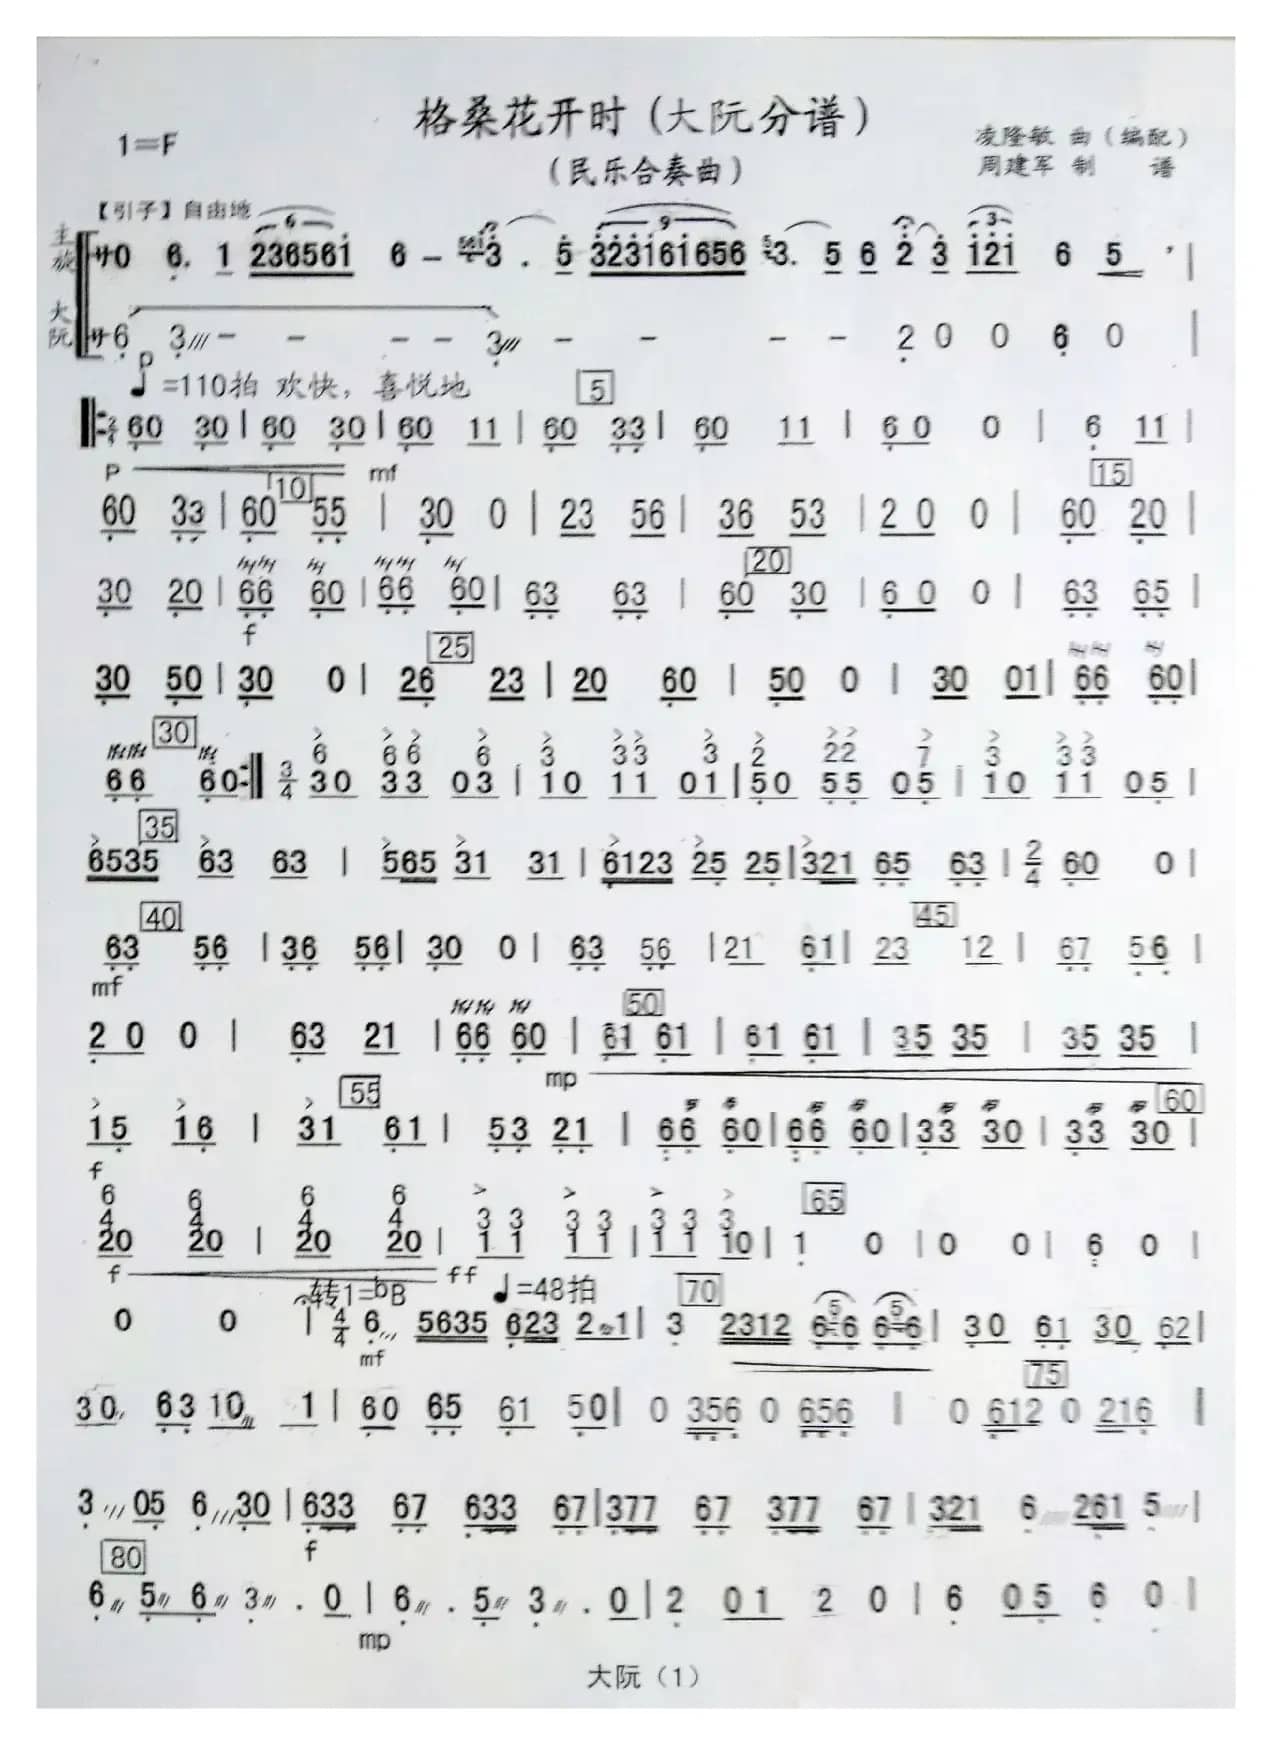 格桑花开时（大阮分谱）
1=F
（民乐合奏曲）
凌隆敏 曲（编配）
周建军 制 谱
【引子】自由地
主旋 サ0 6. 1 236561 6 - 3. 5 323161656 3. 5 6 2 3 121 6 5 ' |
大阮 サ6 3/// - - - - 3/// - - - - 2 0 0 6 0 |
p
♩=110拍 欢快，喜悦地 5
2/4 60 30 | 60 30 | 60 11 | 60 33 | 60 11 | 60 0 | 6 11 |
p mf 10 15
60 33 | 60 55 | 30 0 | 23 56 | 36 53 | 20 0 | 60 20 |
20
30 20 | 66 60 | 66 60 | 63 63 | 60 30 | 60 0 | 63 65 |
f 25
30 50 | 30 0 | 26 23 | 20 60 | 50 0 | 30 01 | 66 60 |
30
> >> > > >> > > >> > > >>
6 66 6 3 33 3 2 22 7 3 33
66 60 :‖ 3/4 30 33 03 | 10 11 01 | 50 55 05 | 10 11 05 |
35
6535 63 63 | 565 31 31 | 6123 25 25 | 321 65 63 | 2/4 60 0 |
40 45
63 56 | 36 56 | 30 0 | 63 56 | 21 61 | 23 12 | 67 56 |
mf
50
20 0 | 63 21 | 66 60 | 61 61 | 61 61 | 35 35 | 35 35 |
mp
55 60
15 16 | 31 61 | 53 21 | 66 60 | 66 60 | 33 30 | 33 30 |
f
6 6 6 6 > > > > 65
4 4 4 4 33 33 33 3
20 20 | 20 20 | 11 11 | 11 10 | 1 0 | 0 0 | 6 0 |
f ff
转1=bB ♩=48拍 70
0 0 | 4/4 6/// 5635 623 2 1 | 3 2312 6 6 6 6 | 30 61 30 62 |
mf 75
30 63 10 1 | 60 65 61 50 | 0 356 0 656 | 0 612 0 216 |
3/// 05 6/// 30 | 633 67 633 67 | 377 67 377 67 | 321 6/// 261 5/// |
f
80
6/// 5/// 6/// 3/// . 0 | 6/// . 5/// 3/// . 0 | 2 01 2 0 | 6 05 6 0 |
mp
大阮（1）